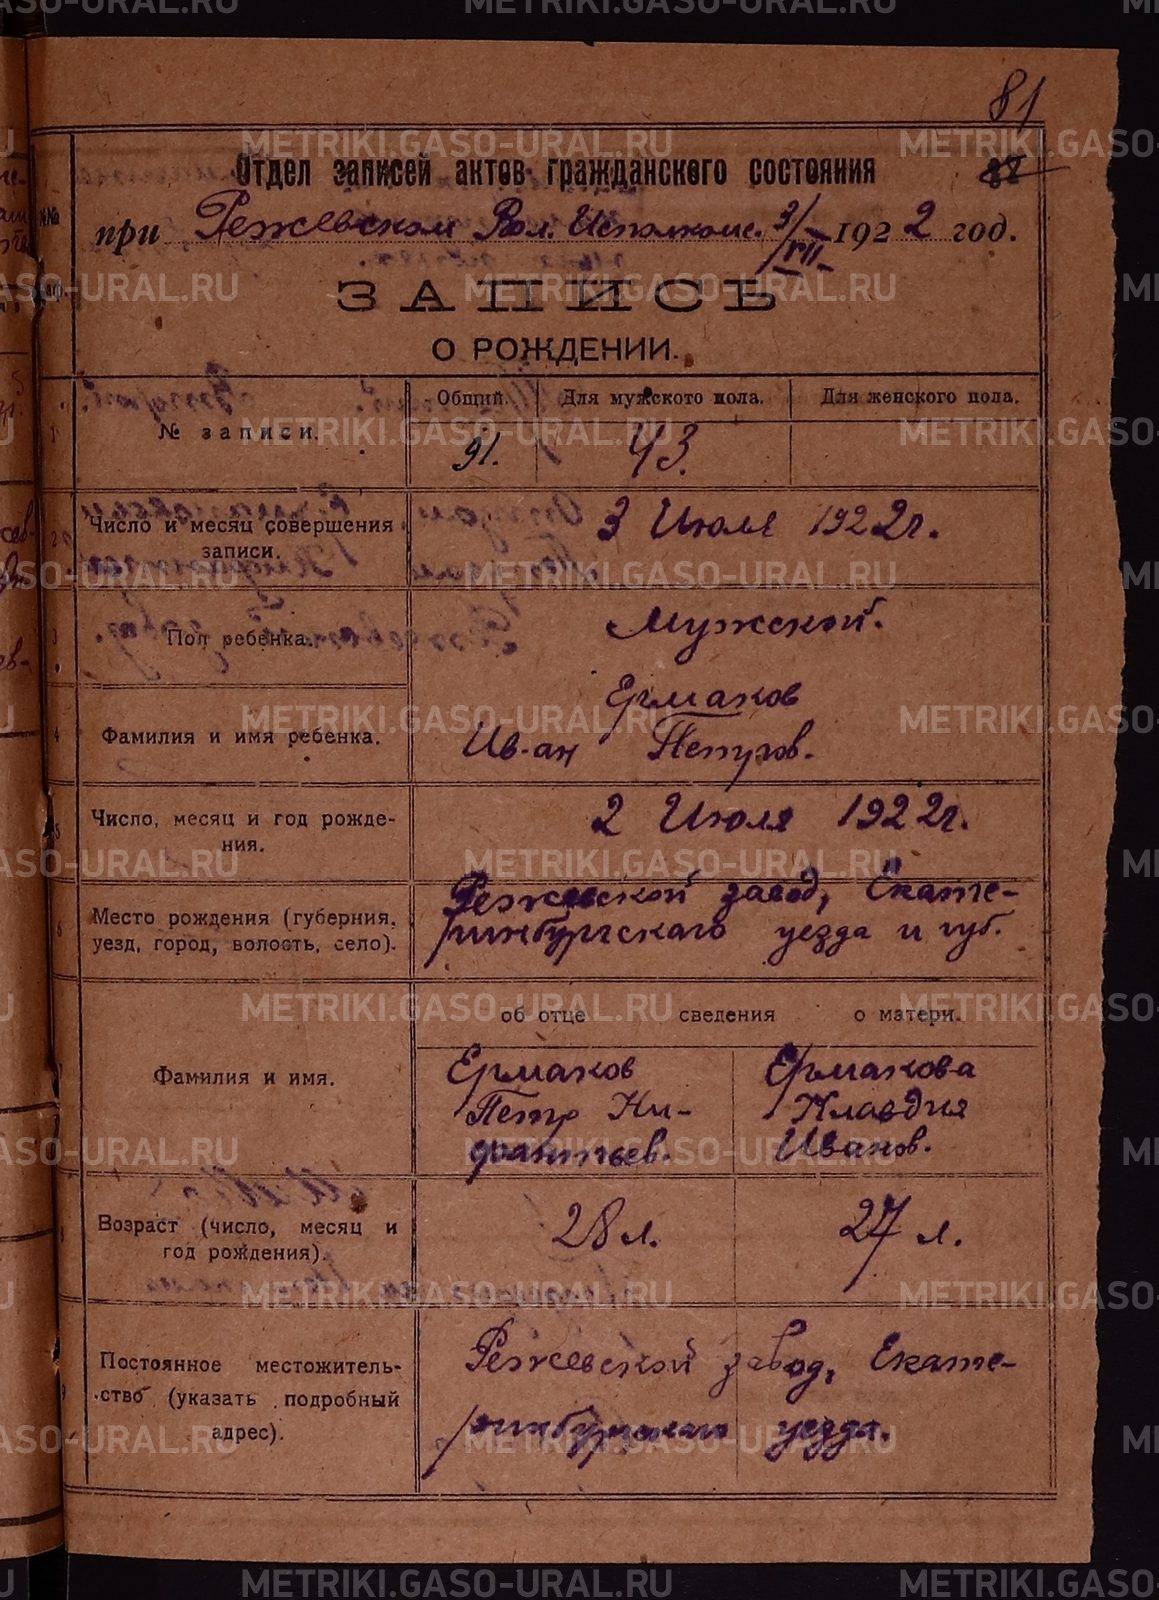 81
Отдел записей актов гражданского состояния
при Режевском Вол. Исполкоме. 3/VII 1922 год.
ЗАПИСЬ
О РОЖДЕНИИ.
Общий. Для мужского пола. Для женского пола.
1 № записи. 91. 43.
2 Число и месяц совершения записи. 3 Июля 1922г.
3 Пол ребенка. Мужской.
4 Фамилия и имя ребенка. Ермаков
Иван Петров.
5 Число, месяц и год рожде-
ния. 2 Июля 1922г.
6 Место рождения (губерния, Режевской завод, Екате-
уезд, город, волость, село). ринбургскаго уезда и губ.
об отце сведения о матери.
Фамилия и имя. Ермаков Ермакова
Петр Ки- Клавдия
фантьев. Иванов.
8 Возраст (число, месяц и
год рождения). 28 л. 27 л.
9 Постоянное местожитель-
ство (указать подробный
адрес). Режевской завод, Екате-
ринбургскаго уезда.
METRIKI.GASO-URAL.RU